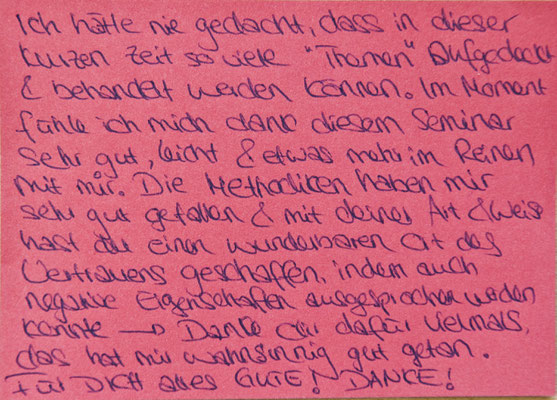 Ich hätte nie gedacht, dass in dieser
kurzen Zeit so viele "Themen" Aufgedeckt
& behandelt werden können. Im Moment
fühle ich mich dank diesem Seminar
sehr gut, leicht & etwas mehr im Reinen
mit mir. Die Methodiken haben mir
sehr gut gefallen & mit deiner Art & Weis
hast du einen wunderbaren Ort des
Vertrauens geschaffen, indem auch
negative Eigenschaften ausgesprochen werden
konnte → Danke dir dafür vielmals,
das hat mir wahnsinnig gut getan.
FÜR DICH alles GUTE! DANKE!